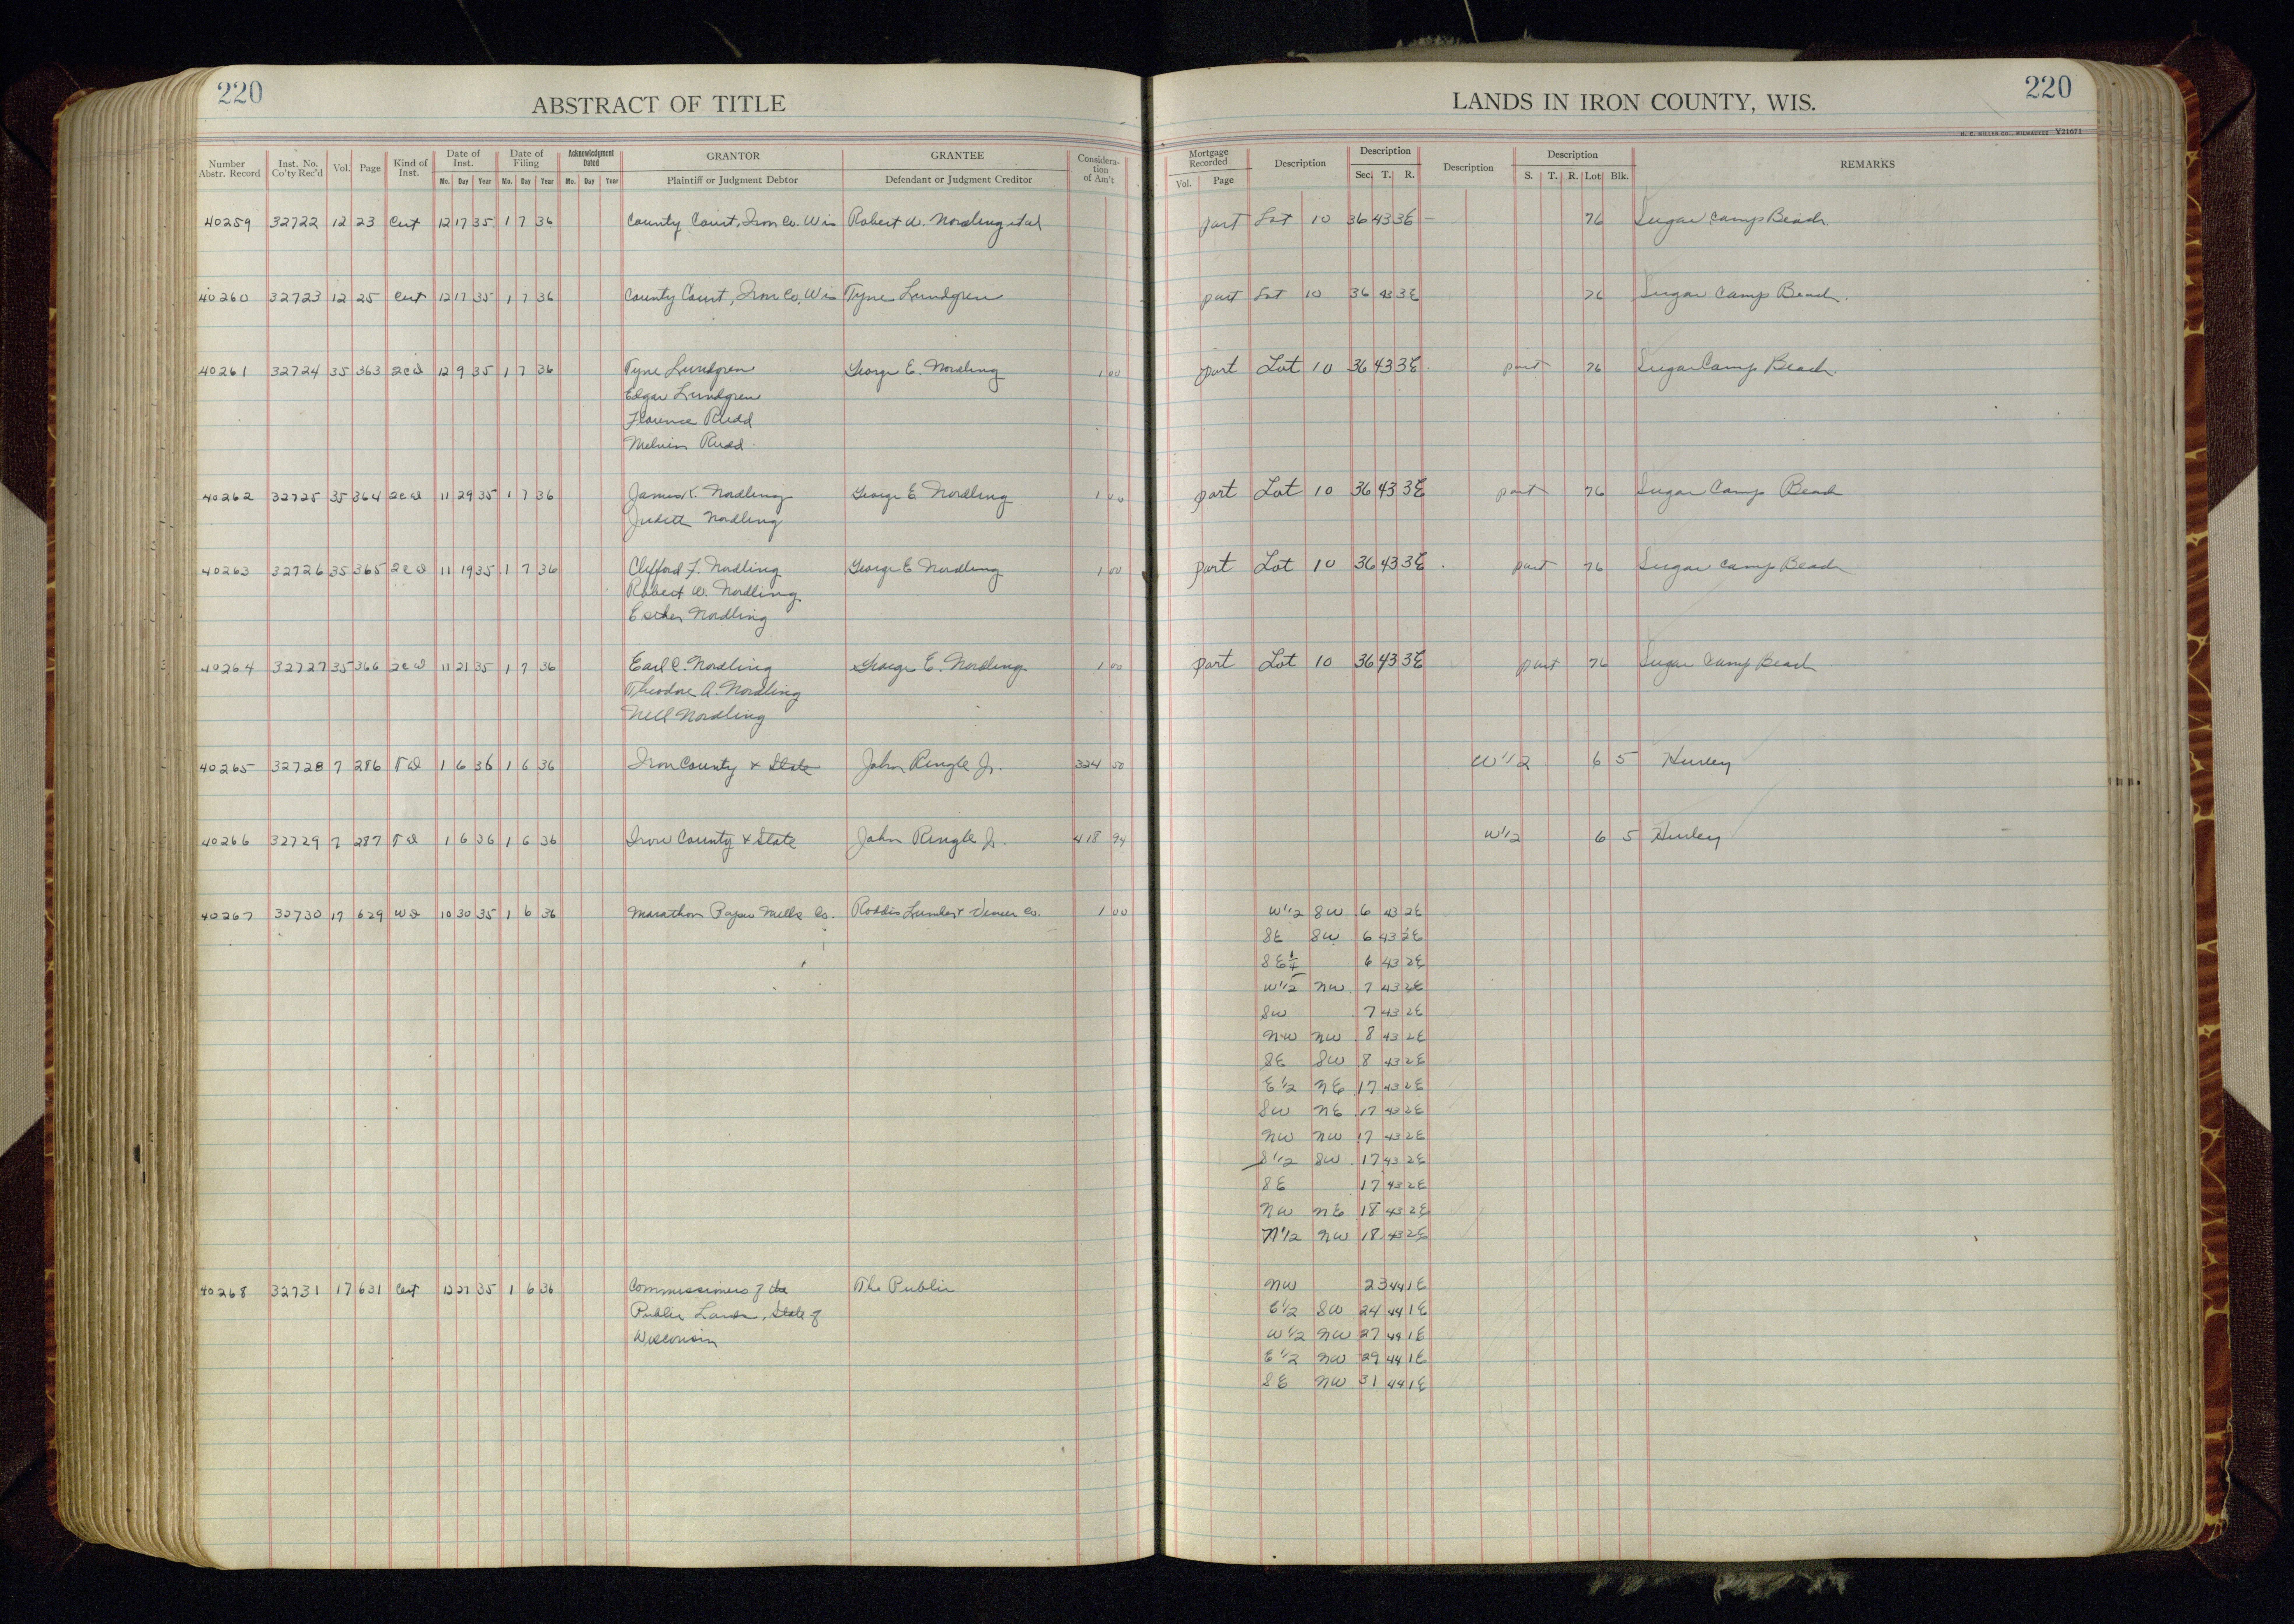 220
ABSTRACT OF TITLE
LANDS IN IRON COUNTY, WIS.
220
H. C. MILLER CO., MILWAUKEE V21671
Number Abstr. Record Inst. No. Co'ty Rec'd Vol. Page Kind of Inst. Date of Inst. Mo. Day Year Date of Filing Mo. Day Year Acknowledgment Dated Mo. Day Year GRANTOR Plaintiff or Judgment Debtor GRANTEE Defendant or Judgment Creditor Consideration of Am't
Mortgage Recorded Vol. Page Description Description Sec. T. R. Description Description S. T. R. Lot Blk. REMARKS
40259 32722 12 23 Cert 12 17 35 1 7 36 County Court, Iron Co. Wis Robert W. Nordling et al part Lot 10 36 43 3E 76 Sugar Camp Beach.
40260 32723 12 25 Cert 12 17 35 1 7 36 County Court, Iron Co. Wis Tyne Lundgren part Lot 10 36 43 3E 76 Sugar Camp Beach.
40261 32724 35 363 2CD 12 9 35 1 7 36 Tyne Lundgren George E. Nordling 1 00 part Lot 10 36 43 3E part 76 Sugar Camp Beach.
Edgar Lundgren
Florence Rudd
Melvin Rudd.
40262 32725 35 364 2CD 11 29 35 1 7 36 James K. Nordling George E. Nordling 1 00 part Lot 10 36 43 3E part 76 Sugar Camp Beach
Judith Nordling
40263 32726 35 365 2CD 11 19 35 1 7 36 Clifford F. Nordling George E Nordling 1 00 part Lot 10 36 43 3E part 76 Sugar Camp Beach
Robert W. Nordling
Esther Nordling
40264 32727 35 366 2CD 11 21 35 1 7 36 Earl C. Nordling George E. Nordling 1 00 part Lot 10 36 43 3E part 76 Sugar Camp Beach
Theodore A. Nordling
Nell Nordling
40265 32728 7 286 TD 1 6 36 1 6 36 Iron County & State John Ringle Jr. 324 50 W 1/2 6 5 Hurley
40266 32729 7 287 TD 1 6 36 1 6 36 Iron County & State John Ringle Jr. 418 94 W 1/2 6 5 Hurley
40267 32730 17 629 WD 10 30 35 1 6 36 Marathon Paper Mills Co. Roddis Lumber & Veneer Co. 1 00 W 1/2 SW 6 43 2E
SE SW 6 43 2E
SE 1/4 6 43 2E
W 1/2 NW 7 43 2E
SW 7 43 2E
NW NW 8 43 2E
SE SW 8 43 2E
E 1/2 NE 17 43 2E
SW NE 17 43 2E
NW NW 17 43 2E
S 1/2 SW 17 43 2E
SE 17 43 2E
NW NE 18 43 2E
N 1/2 NW 18 43 2E
40268 32731 17 631 Cert 12 27 35 1 6 36 Commissioners of the The Public NW 23 44 1E
Public Lands, State of E 1/2 SW 24 44 1E
Wisconsin W 1/2 NW 27 44 1E
E 1/2 NW 29 44 1E
SE NW 31 44 1E